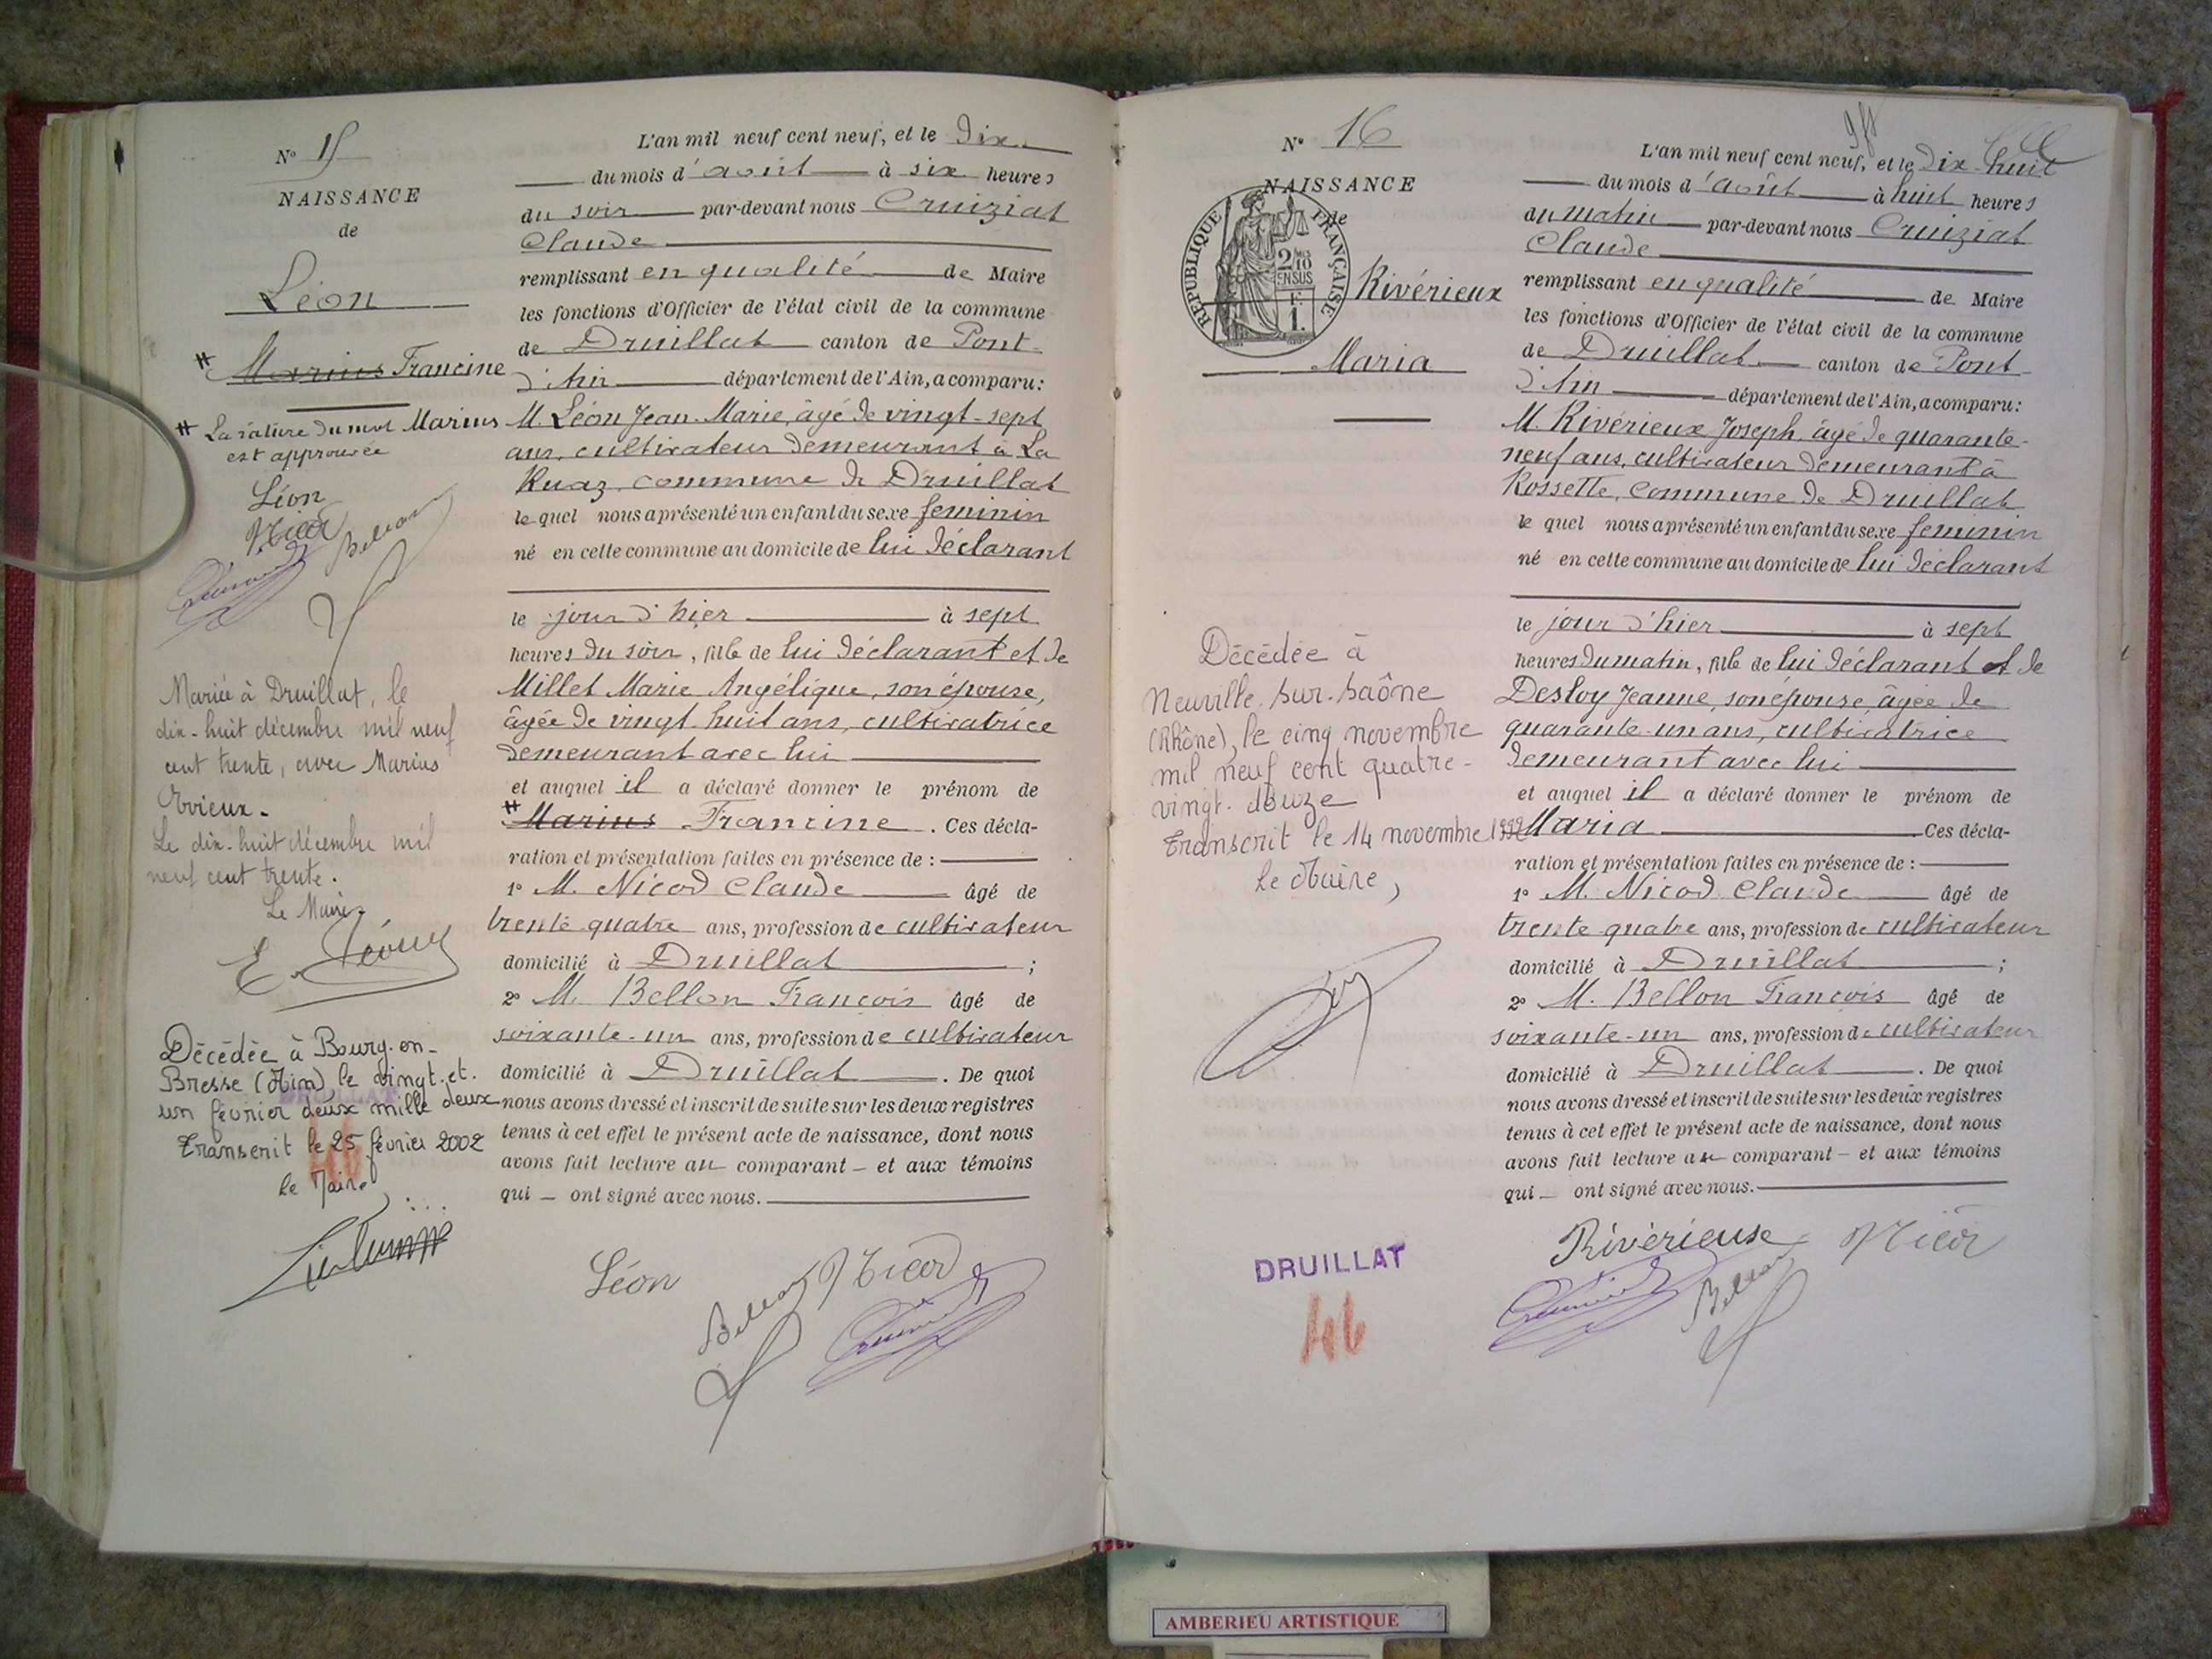 N° 15
NAISSANCE
de
Léon
# Marius Francine
# La rature du mot Marius
est approuvée
Léon
Nicod
Bellon
Mariée à Druillat, le
dix-huit décembre mil neuf
cent trente, avec Marius
Le dix-huit décembre mil
neuf cent trente.
Le Maire
Décédée à Bourg-en-
Bresse (Ain) le vingt-et-
un février deux mille deux
Transcrit le 25 février 2002
le Maire
DRUILLAT
46
L'an mil neuf cent neuf, et le Dix
du mois d'août à six heures
du soir par-devant nous Cruiziat
Claude
remplissant en qualité de Maire
les fonctions d'Officier de l'état civil de la commune
de Druillat canton de Pont-
d'Ain département de l'Ain, a comparu:
M. Léon Jean-Marie, âgé de vingt-sept
ans, cultivateur demeurant à La
Ruaz, commune de Druillat
lequel nous a présenté un enfant du sexe feminin
né en cette commune au domicile de lui déclarant
le jour d'hier à sept
heures du soir, fille de lui déclarant et de
Millet Marie Angélique, son épouse,
âgée de vingt-huit ans, cultivatrice
demeurant avec lui
et auquel il a déclaré donner le prénom de
# Marius Francine. Ces décla-
ration et présentation faites en présence de :
1° M. Nicod Claude âgé de
trente quatre ans, profession de cultivateur
domicilié à Druillat ;
2° M. Bellon François âgé de
soixante-un ans, profession de cultivateur
domicilié à Druillat. De quoi
nous avons dressé et inscrit de suite sur les deux registres
tenus à cet effet le présent acte de naissance, dont nous
avons fait lecture au comparant – et aux témoins
qui – ont signé avec nous.
Léon
Bellon
Nicod
N° 16
NAISSANCE
de
REPUBLIQUE FRANÇAISE
2/10 EN SUS
Rivérieux
Maria
Décédée à
Neuville-sur-Saône
(Rhône), le cinq novembre
mil neuf cent quatre-
vingt-douze
Transcrit le 14 novembre 1992
Le Maire,
DRUILLAT
46
L'an mil neuf cent neuf, et le Dix-huit
du mois d'août à huit heures
du matin par-devant nous Cruiziat
Claude
remplissant en qualité de Maire
les fonctions d'Officier de l'état civil de la commune
de Druillat canton de Pont-
d'Ain département de l'Ain, a comparu:
M. Rivérieux Joseph, âgé de quarante-
neuf ans, cultivateur demeurant à
Rossette, commune de Druillat
lequel nous a présenté un enfant du sexe feminin
né en cette commune au domicile de lui déclarant
le jour d'hier à sept
heures du matin, fille de lui déclarant et de
Desloy Jeanne, son épouse, âgée de
quarante-un ans, cultivatrice
demeurant avec lui
et auquel il a déclaré donner le prénom de
Maria. Ces décla-
ration et présentation faites en présence de :
1° M. Nicod Claude âgé de
trente quatre ans, profession de cultivateur
domicilié à Druillat ;
2° M. Bellon François âgé de
soixante-un ans, profession de cultivateur
domicilié à Druillat. De quoi
nous avons dressé et inscrit de suite sur les deux registres
tenus à cet effet le présent acte de naissance, dont nous
avons fait lecture au comparant – et aux témoins
qui – ont signé avec nous.
Rivérieuse Nicod
Bellon
AMBERIEU ARTISTIQUE